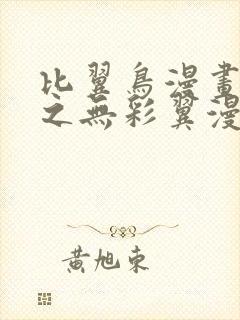 比翼鳥漫畫
之無彩翼漫
黃旭東